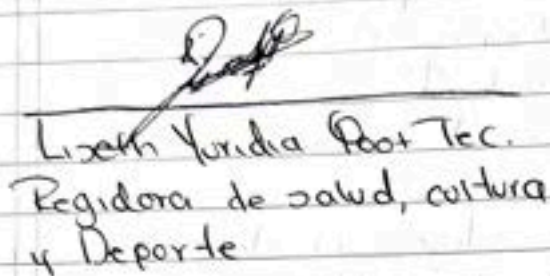 Lizeth Yuridia Poot Tec.
Regidora de salud, cultura
y Deporte